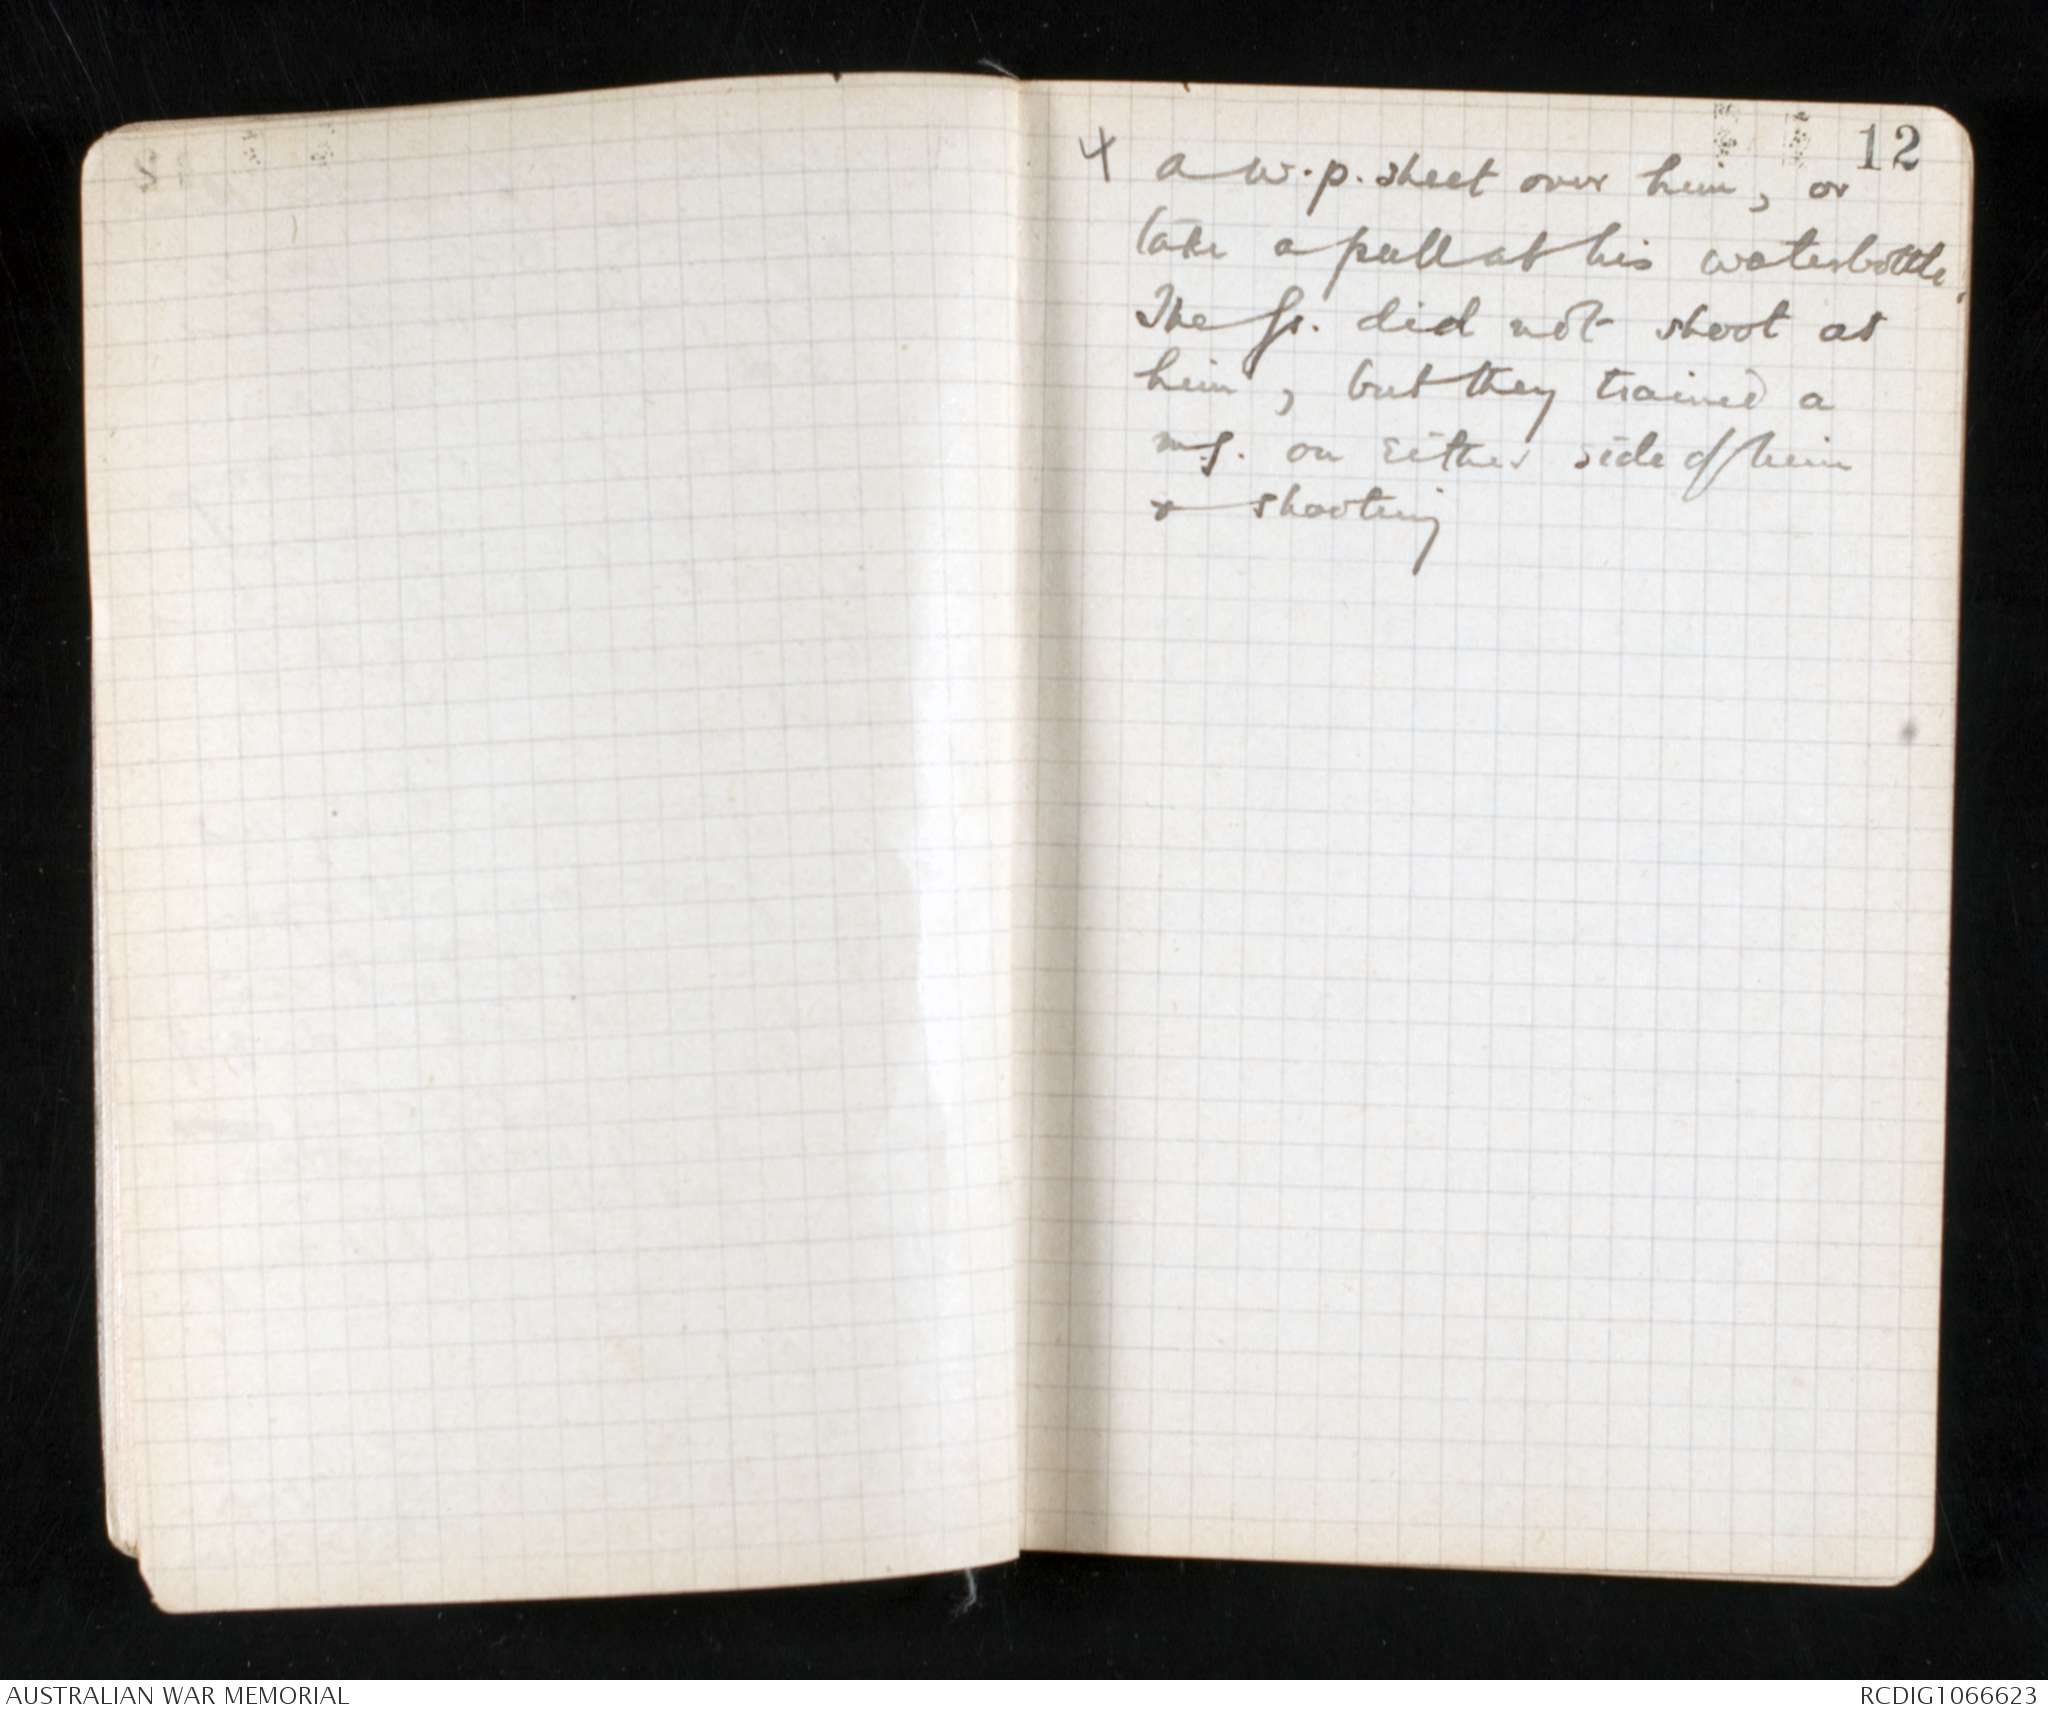 12
4 a w.p. sheet over him, or
take a pull at his waterbottle.
The Gs. did not shoot at
him, but they trained a
m.g. on either side of him
& shooting
AUSTRALIAN WAR MEMORIAL
RCDIG1066623